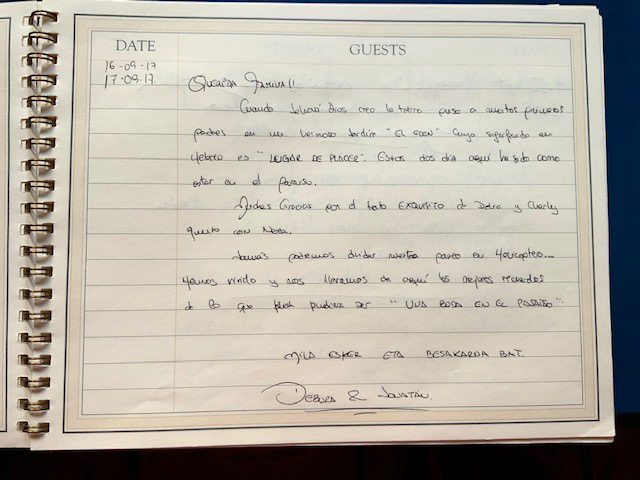 DATE GUESTS
16-09-17
17-09-17
QUERIDA FAMILIA!!
Cuando Jehová Dios creo la tierra puso a nuestros primeros
padres en un hermoso Jardín "EL EDEN" Cuyo significado en
Hebreo es "LUGAR DE PLACER". Estos dos día aquí ha sido como
estar en el paraíso.
Muchas Gracias por el trato EXQUISITO de y Charly
junto con Nora.
Jamás podremos olvidar nuestro paseo en Helicoptero...
Hemos vivido y nos llevamos de aquí los mejores recuerdos
de lo que pudiera ser "UNA BODA EN EL PARAISO".
MILA ESKER ETA BESARKADA BAT.
DEBORA & JONATAN.